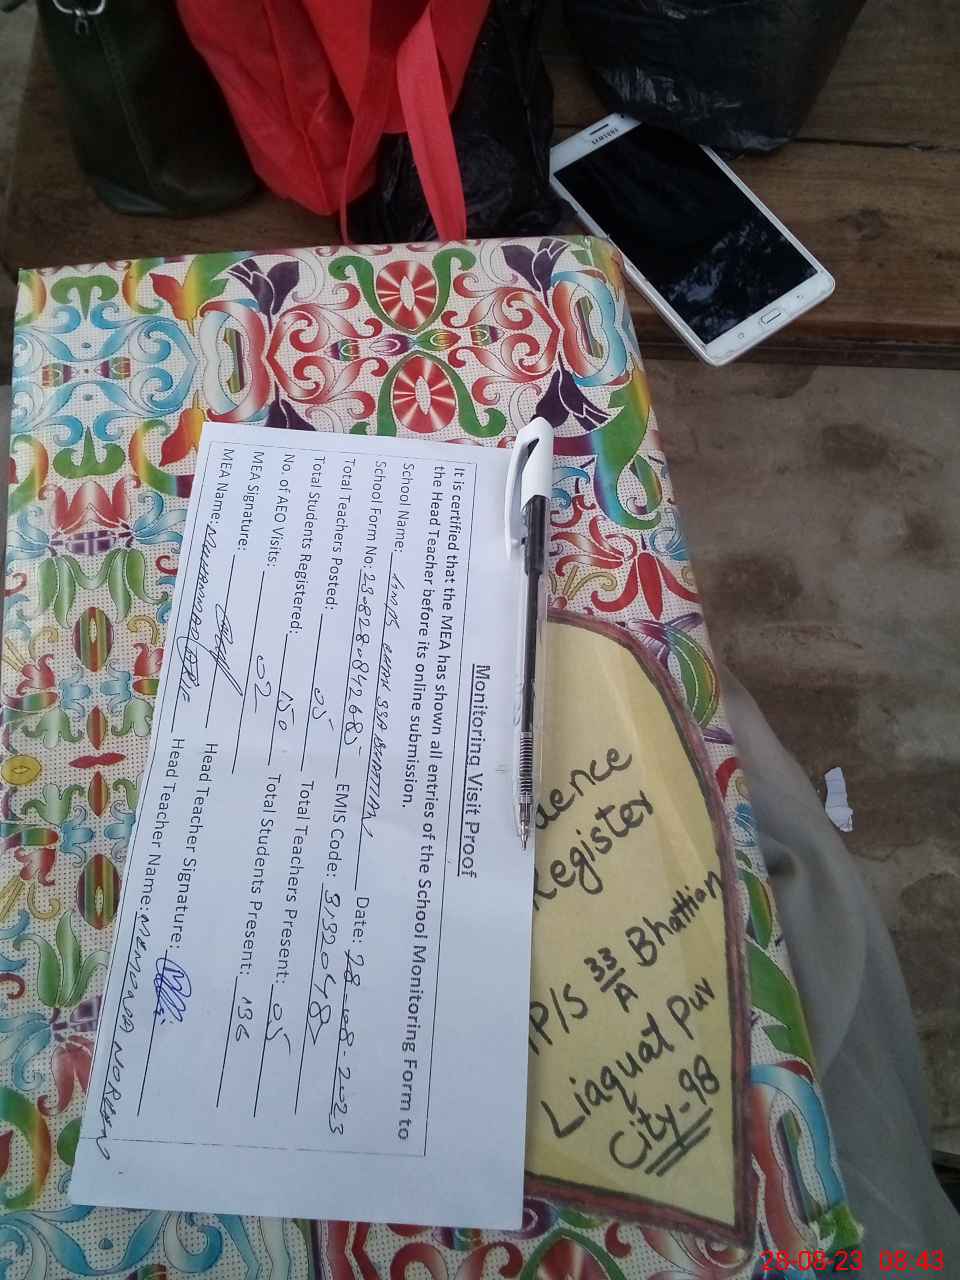 Monitoring Visit Proof
It is certified that the MEA has shown all entries of the School Monitoring Form to
the Head Teacher before its online submission.
School Name: 33A BHATTIAN Date: 28-08-2023
School Form No: 23-828-842685 EMIS Code: 3132048
Total Teachers Posted: 05 Total Teachers Present: 05
Total Students Registered: 150 Total Students Present: 136
No. of AEO Visits: 02
MEA Signature: Head Teacher Signature:
MEA Name: MUHAMMAD ARIF Head Teacher Name: MEMONA NOREEN
dence
Register
P/S 33/A Bhattian
Liaquat Pur
City-98
SAMSUNG
28-08-23 08:43